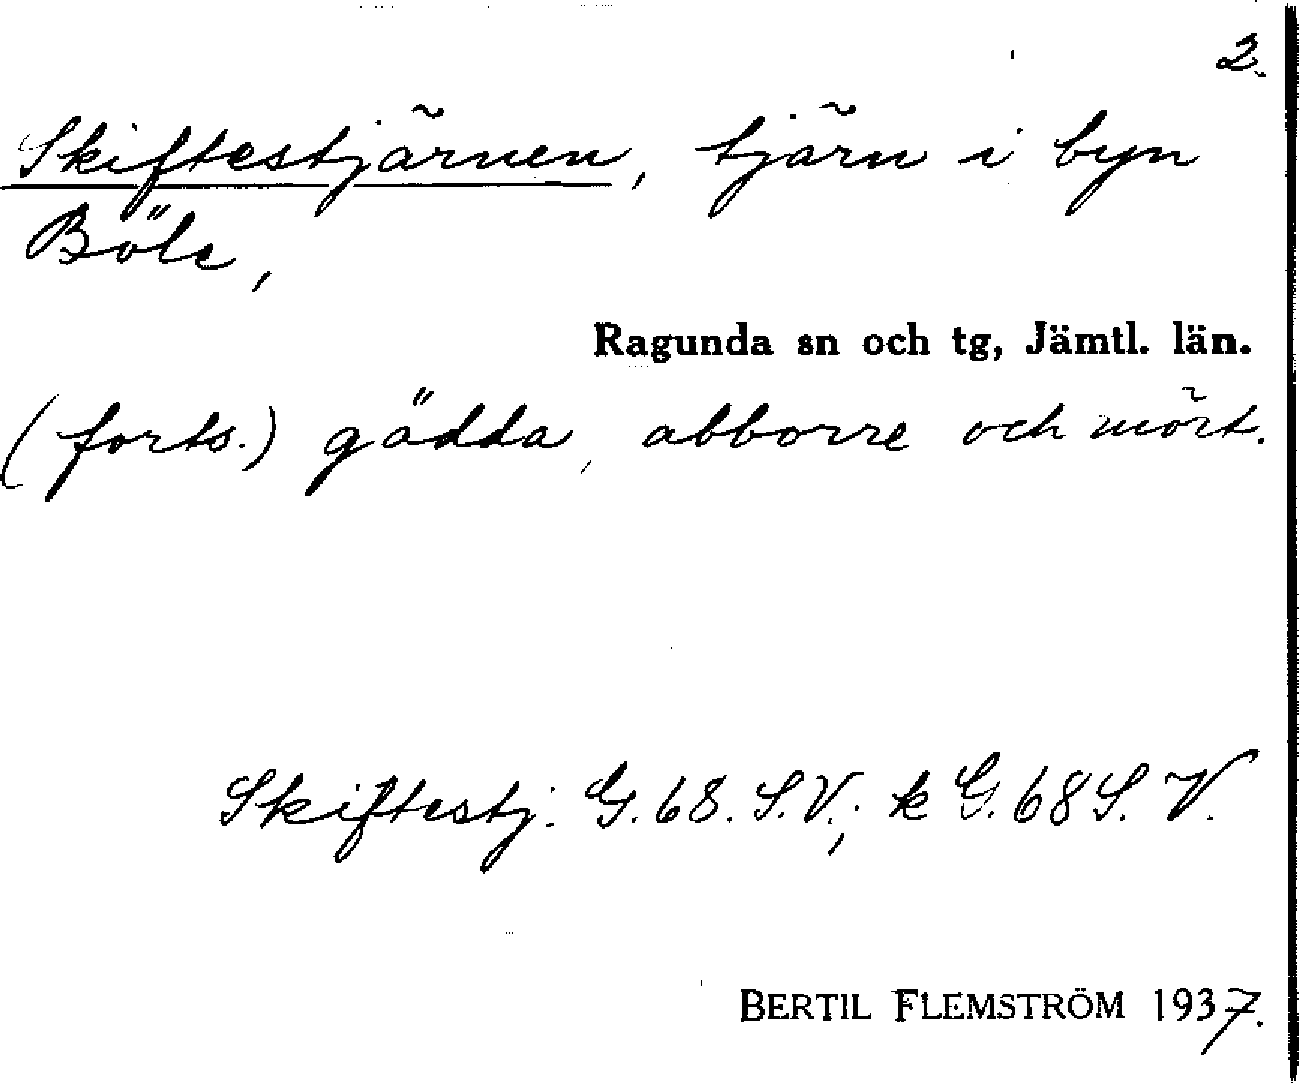 2.
Skiftestjärnen, tjärn i byn
Böle,
Ragunda sn och tg, Jämtl. län.
(forts.) gädda, abborre och mört.
Skiftestj. G. 68. S.V.; k G. 68 S. V.
BERTIL FLEMSTRÖM 1937.